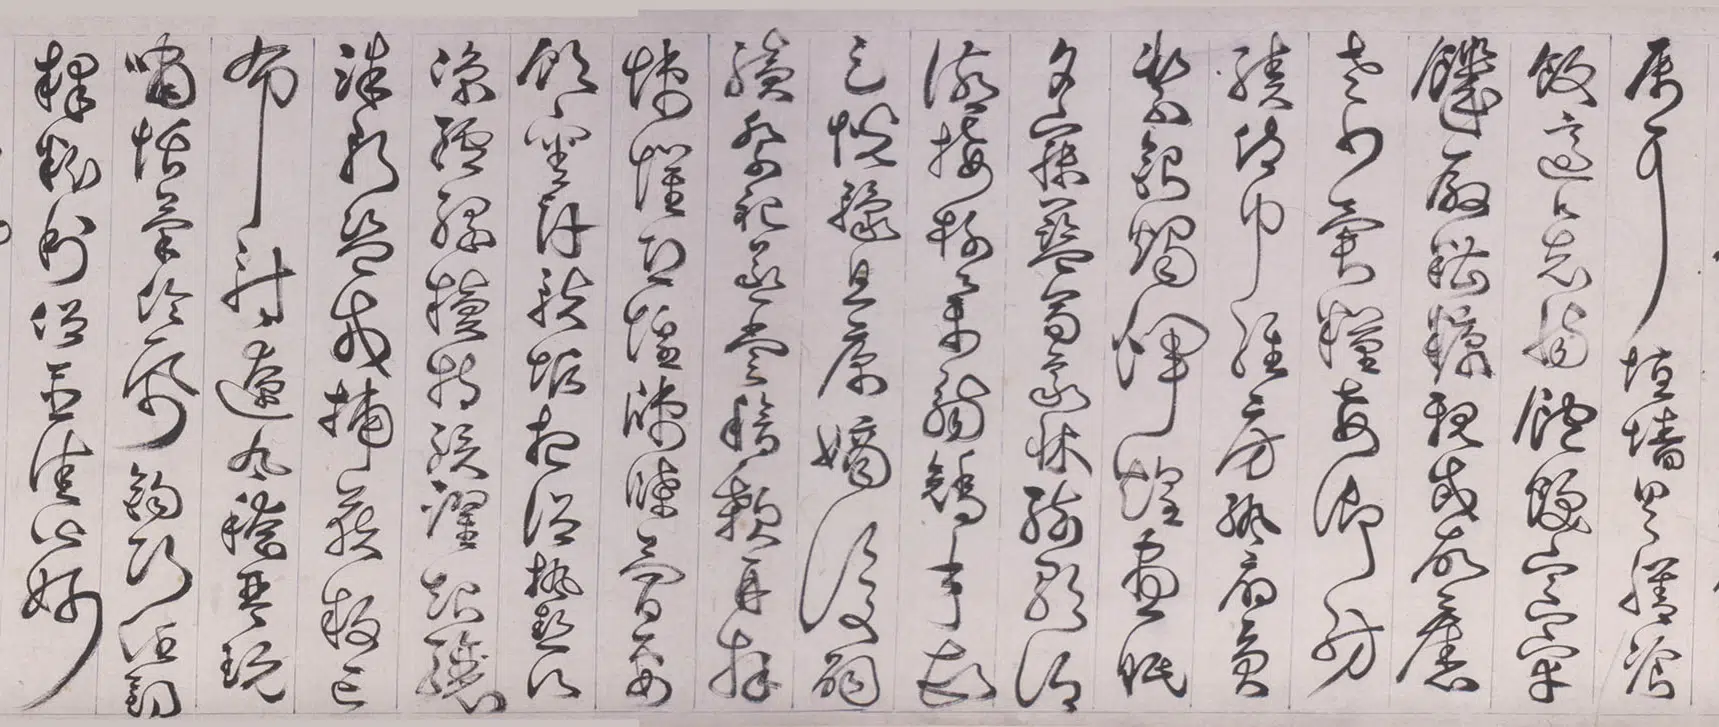 屬耳垣牆具膳飡
飯適口充腸飽飫烹宰
飢厭糟糠親戚故舊
老少異糧妾御紡
績侍巾帷房紈扇員
潔銀燭煒煌晝眠
夕寐藍筍象床絃歌酒
讌接杯舉觴矯手頓
足悅豫且康嫡後嗣
續祭祀蒸嘗稽顙再拜
悚懼恐惶牋牒簡要
顧審詳骸垢想浴執熱願
涼驢騾犢特駭躍超驤
誅斬盜賊捕獲叛亡
布射遼丸嵇琴阮
嘯恬筆倫紙鈞巧任釣
釋紛利俗並皆佳妙